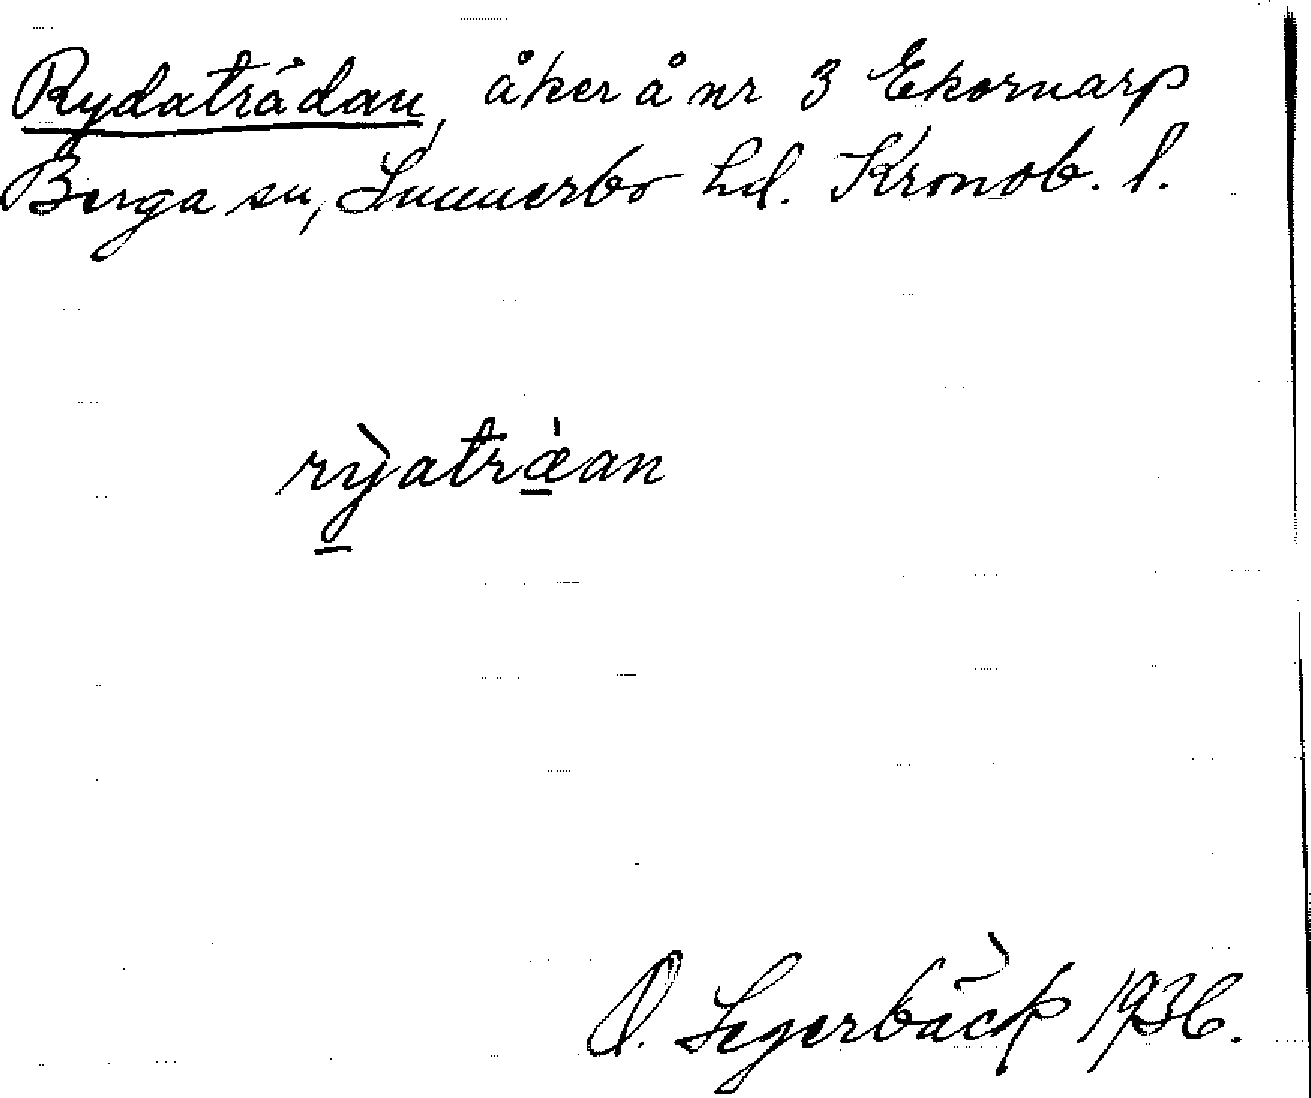 Rydaträdan, åker å nr 3 Ekornarp
Berga sn, Sunnerbo hd. Kronob. l.
rỳatræ̀an
O. Segerbäck 1936.